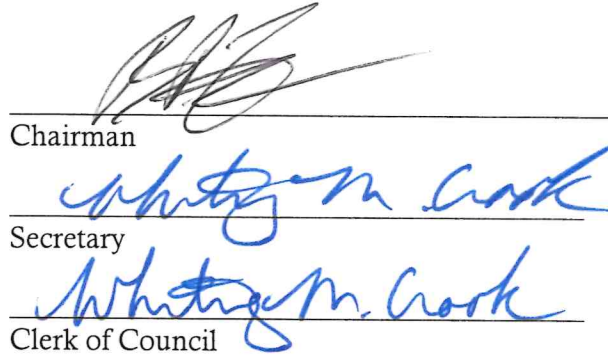 Chairman
Whitney M. Crook
Secretary
Whitney M. Crook
Clerk of Council